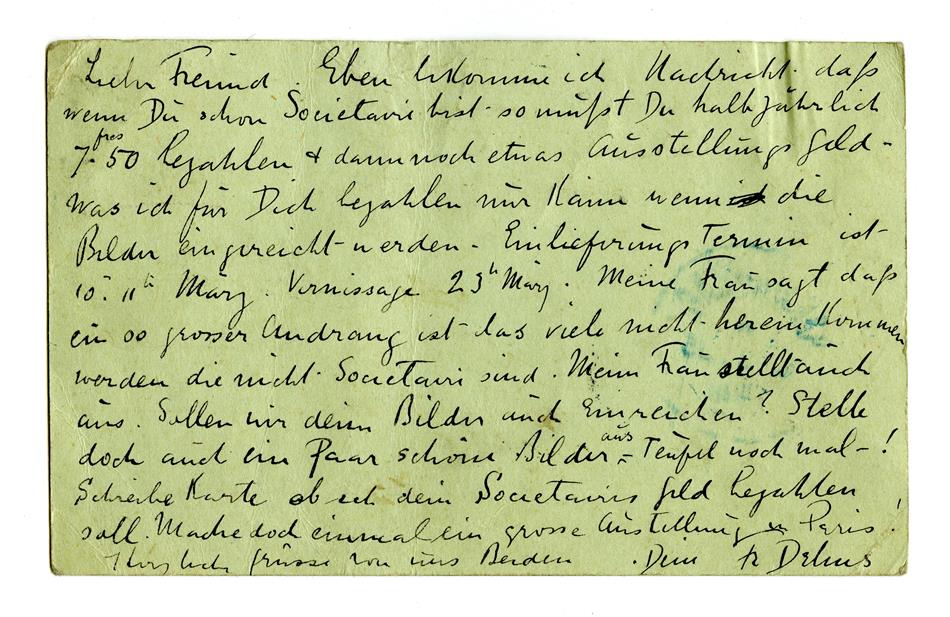 Lieber Freund. Eben bekomme ich Nachricht daß
wenn Du schon Societaire bist so mußt Du halbjährlich
7.50 frcs bezahlen + dann noch etwas Ausstellungs Geld -
Was ich für Dich bezahlen nur kann wenn die
Bilder eingereicht werden - Einlieferungs Termin ist
10. 11th März. Vernissage 23th März. Meine Frau sagt daß
ein so grosser Andrang ist das viele nicht herein kommen
werden die nicht Societairs sind. Meine Frau stellt auch
aus. Sollen wir deine Bilder auch Einreichen? Stelle
doch auch ein Paar schöne Bilder aus - Teufel noch mal - !
Schreibe Karte ob ich dein Societaires Geld bezahlen
soll. Mache doch einmal ein grosse Austellung in Paris!
Herzlich grüsse von uns Beiden . Dein